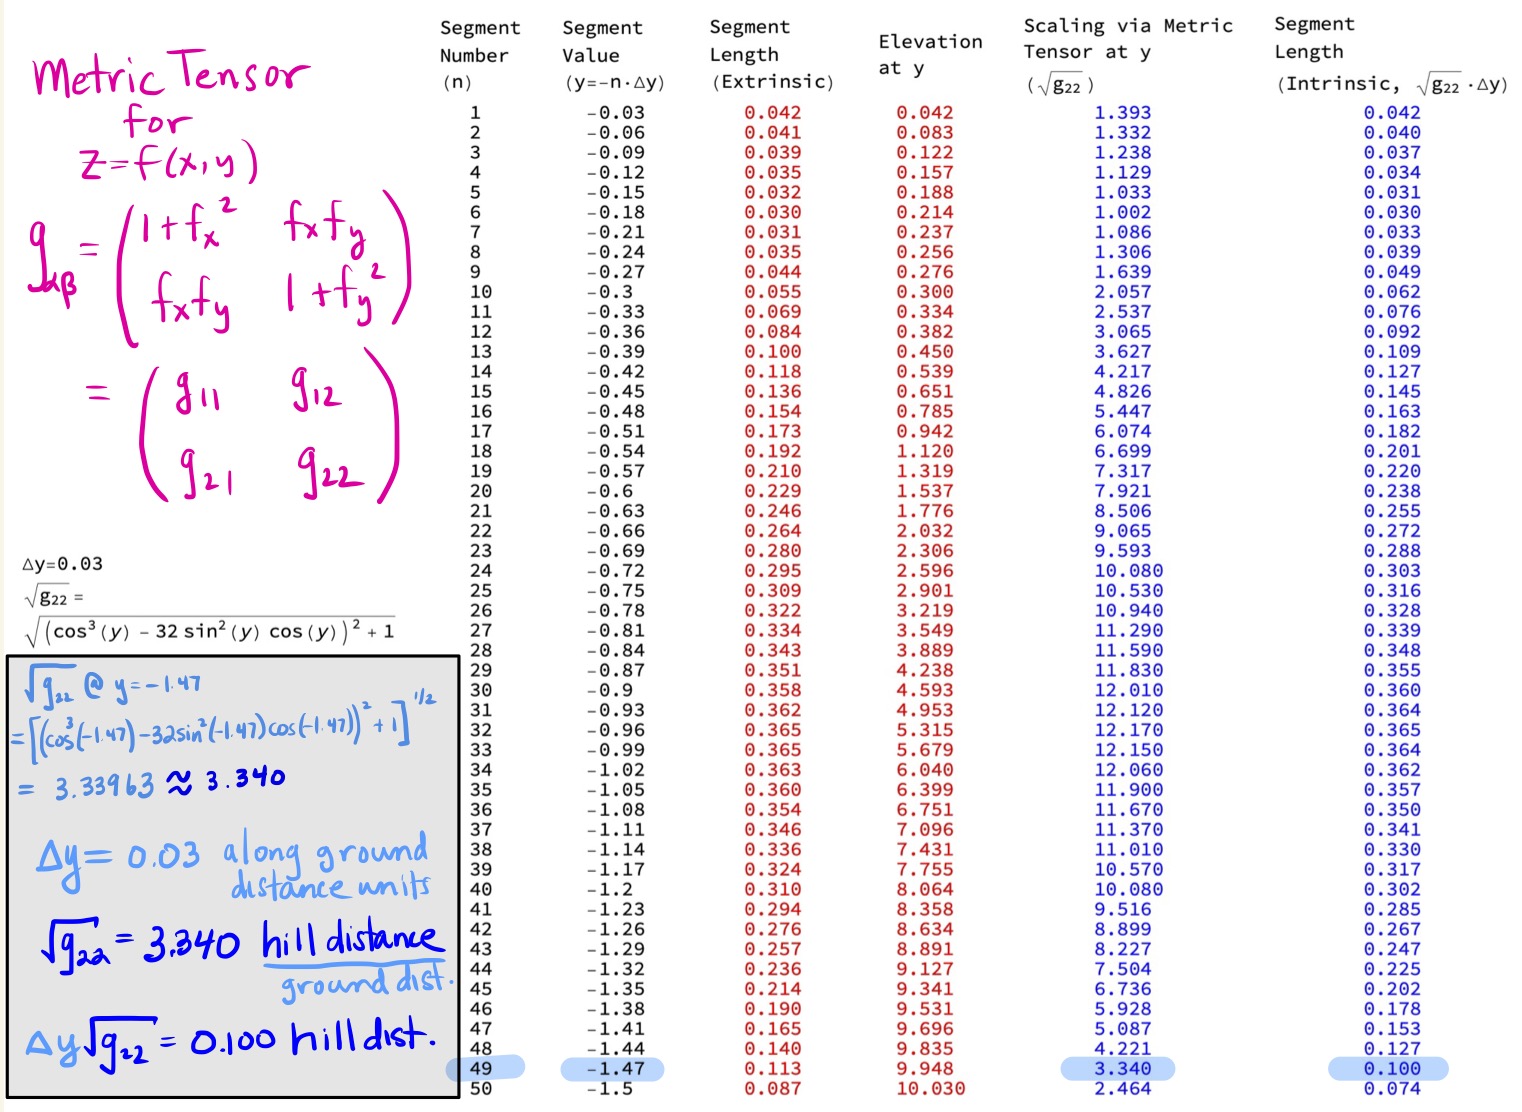 Metric Tensor
for
z=f(x,y)
g_αβ = ( 1+f_x² f_xf_y
f_xf_y 1+f_y² )
= ( g₁₁ g₁₂
g₂₁ g₂₂ )
Δy=0.03
√g₂₂ =
√(cos³(y) – 32 sin²(y) cos(y))² + 1
√g₂₂ @ y=-1.47
=[(cos³(-1.47)-32sin²(-1.47)cos(-1.47))²+1]^1/2
= 3.33963 ≈ 3.340
Δy= 0.03 along ground
distance units
√g₂₂ = 3.340 hill distance
ground dist.
Δy√g₂₂ = 0.100 hill dist.
Segment Segment Segment Elevation Scaling via Metric Segment
Number Value Length at y Tensor at y Length
(n) (y=-n·Δy) (Extrinsic) (√g₂₂) (Intrinsic, √g₂₂·Δy)
1 -0.03 0.042 0.042 1.393 0.042
2 -0.06 0.041 0.083 1.332 0.040
3 -0.09 0.039 0.122 1.238 0.037
4 -0.12 0.035 0.157 1.129 0.034
5 -0.15 0.032 0.188 1.033 0.031
6 -0.18 0.030 0.214 1.002 0.030
7 -0.21 0.031 0.237 1.086 0.033
8 -0.24 0.035 0.256 1.306 0.039
9 -0.27 0.044 0.276 1.639 0.049
10 -0.3 0.055 0.300 2.057 0.062
11 -0.33 0.069 0.334 2.537 0.076
12 -0.36 0.084 0.382 3.065 0.092
13 -0.39 0.100 0.450 3.627 0.109
14 -0.42 0.118 0.539 4.217 0.127
15 -0.45 0.136 0.651 4.826 0.145
16 -0.48 0.154 0.785 5.447 0.163
17 -0.51 0.173 0.942 6.074 0.182
18 -0.54 0.192 1.120 6.699 0.201
19 -0.57 0.210 1.319 7.317 0.220
20 -0.6 0.229 1.537 7.921 0.238
21 -0.63 0.246 1.776 8.506 0.255
22 -0.66 0.264 2.032 9.065 0.272
23 -0.69 0.280 2.306 9.593 0.288
24 -0.72 0.295 2.596 10.080 0.303
25 -0.75 0.309 2.901 10.530 0.316
26 -0.78 0.322 3.219 10.940 0.328
27 -0.81 0.334 3.549 11.290 0.339
28 -0.84 0.343 3.889 11.590 0.348
29 -0.87 0.351 4.238 11.830 0.355
30 -0.9 0.358 4.593 12.010 0.360
31 -0.93 0.362 4.953 12.120 0.364
32 -0.96 0.365 5.315 12.170 0.365
33 -0.99 0.365 5.679 12.150 0.364
34 -1.02 0.363 6.040 12.060 0.362
35 -1.05 0.360 6.399 11.900 0.357
36 -1.08 0.354 6.751 11.670 0.350
37 -1.11 0.346 7.096 11.370 0.341
38 -1.14 0.336 7.431 11.010 0.330
39 -1.17 0.324 7.755 10.570 0.317
40 -1.2 0.310 8.064 10.080 0.302
41 -1.23 0.294 8.358 9.516 0.285
42 -1.26 0.276 8.634 8.899 0.267
43 -1.29 0.257 8.891 8.227 0.247
44 -1.32 0.236 9.127 7.504 0.225
45 -1.35 0.214 9.341 6.736 0.202
46 -1.38 0.190 9.531 5.928 0.178
47 -1.41 0.165 9.696 5.087 0.153
48 -1.44 0.140 9.835 4.221 0.127
49 -1.47 0.113 9.948 3.340 0.100
50 -1.5 0.087 10.030 2.464 0.074